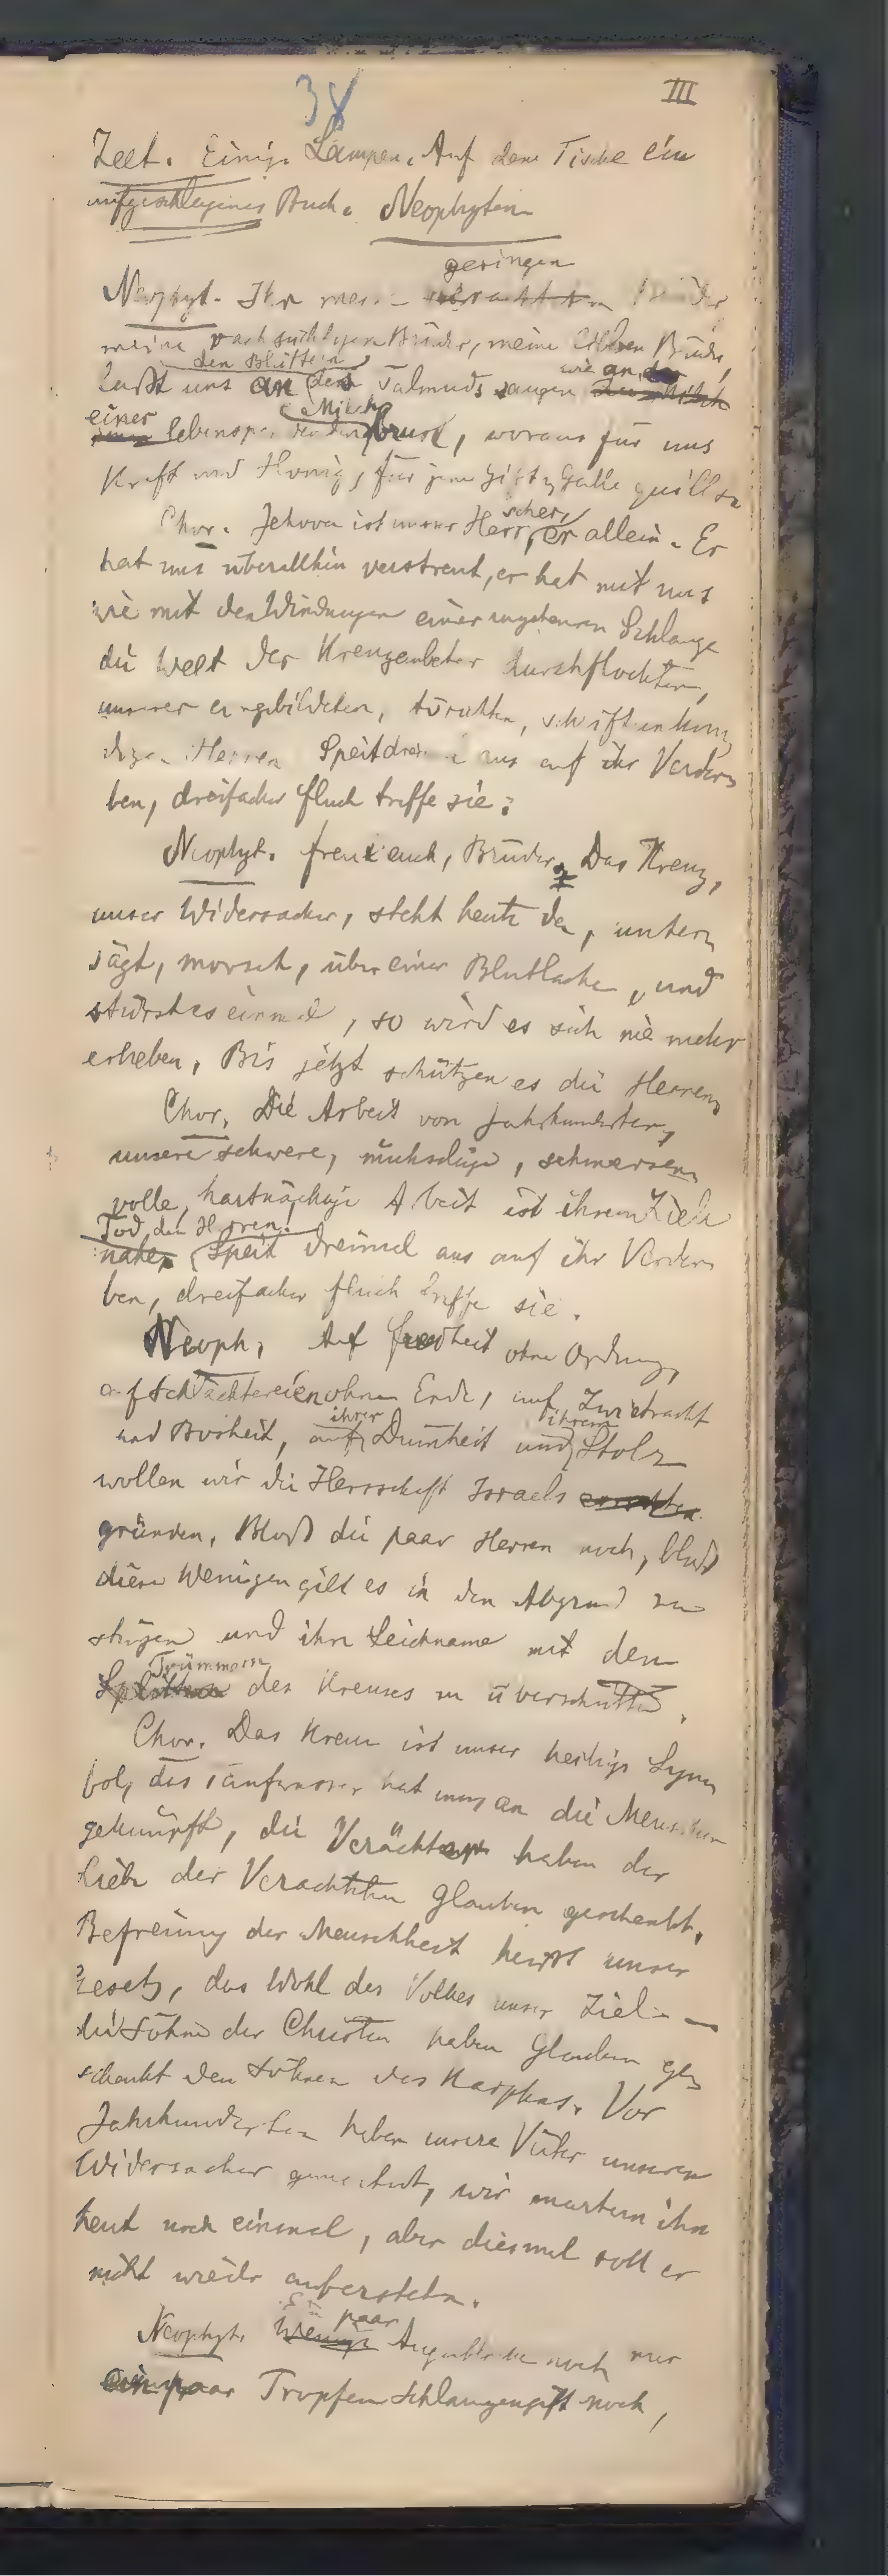 38 III
Zelt. Einige Lampen. Auf dem Tische ein
aufgeschlagenes Buch. Neophyten
geringen
Neophyt. Ihr meine Brüder,
meine rachsüchtigen Brüder, meine lieben Brüder,
den Blättern wie an der
laßt uns an des Talmuds saugen
einer Milch
lebensp. brust, woraus für uns
Kraft und Honig, für jene Gift, Galle quillt
scher
Chor. Jehova ist unser Herr, er allein. Er
hat uns überallhin verstreut, er hat mit uns
wie mit den Windungen einer ungeheuren Schlange
die Welt der Kreuzanbeter durchflochten,
unserer eingebildeten, törichten, schriftunkun
digen Herren Speit drei aus auf ihr Verder
ben, dreifacher fluch treffe sie.
Neophyt. freut euch, Brüder. Das Kreuz,
unser Widersacher, steht heute da, unter
sägt, morsch, über einer Blutlache, und
stürzt es einmal, so wird es sich nie mehr
erheben, Bis jetzt schützen es die Herren
Chor. Die Arbeit von Jahrhunderten,
unsere schwere, mühselige, schmerzen
volle, hartnäckige Arbeit ist ihrem Ziele
Tod den Herren.
nahe Speit dreimal aus auf ihr Verder
ben, dreifacher fluch treffe sie.
Neoph. Auf freiheit ohne Ordnung,
auf Schlächtereien ohne Ende, auf Zwietracht
ihrer ihrem
und Bosheit, auf Dumheit und Stolz
wollen wir die Herrschaft Israels
gründen, Bloß die paar Herren noch, bloß
diese Wenigen gilt es in den Abgrund zu
stürzen und ihre Leichname mit den
Trümmern
Splittern des Kreuzes zu überschütten.
Chor. Das Kreuz ist unser heiliges Sym
bol, das Taufwasser hat uns an die Menschen
geknüpft, die Verächter haben der
Liebe der Verachteten Glauben geschenkt.
Befreiung der Menschheit heisst unser
Gesetz, das Wohl des Volkes unser Ziel. —
die Söhne der Christen haben Glauben ge
schenkt den Söhnen des Kaiphas. Vor
Jahrhunderten haben unsere Väter unseren
Widersacher gemartert, wir martern ihn
heut noch einmal, aber diesmal soll er
nicht wieder auferstehn.
Ein paar
Neophyt. Wenige Augenblicke noch nur
ein paar Tropfen Schlangengift noch,